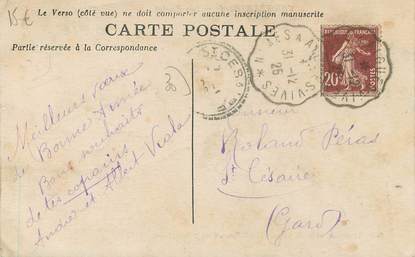 15€
Le Verso (côté vue) ne doit comporter aucune inscription manuscrite
CARTE POSTALE
Partie réservée à la Correspondance
Meilleurs vœux
de Bonne Année
Bons souhaits
de tes copains
André et Albert Viala
31-12
25
RÉPUBLIQUE FRANÇAISE
20c
POSTES
Monsieur
Roland Péras
St Césaire
(Gard)